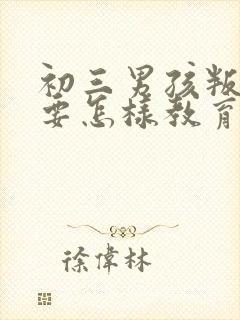 初三男孩叛
要怎樣教育
徐偉林